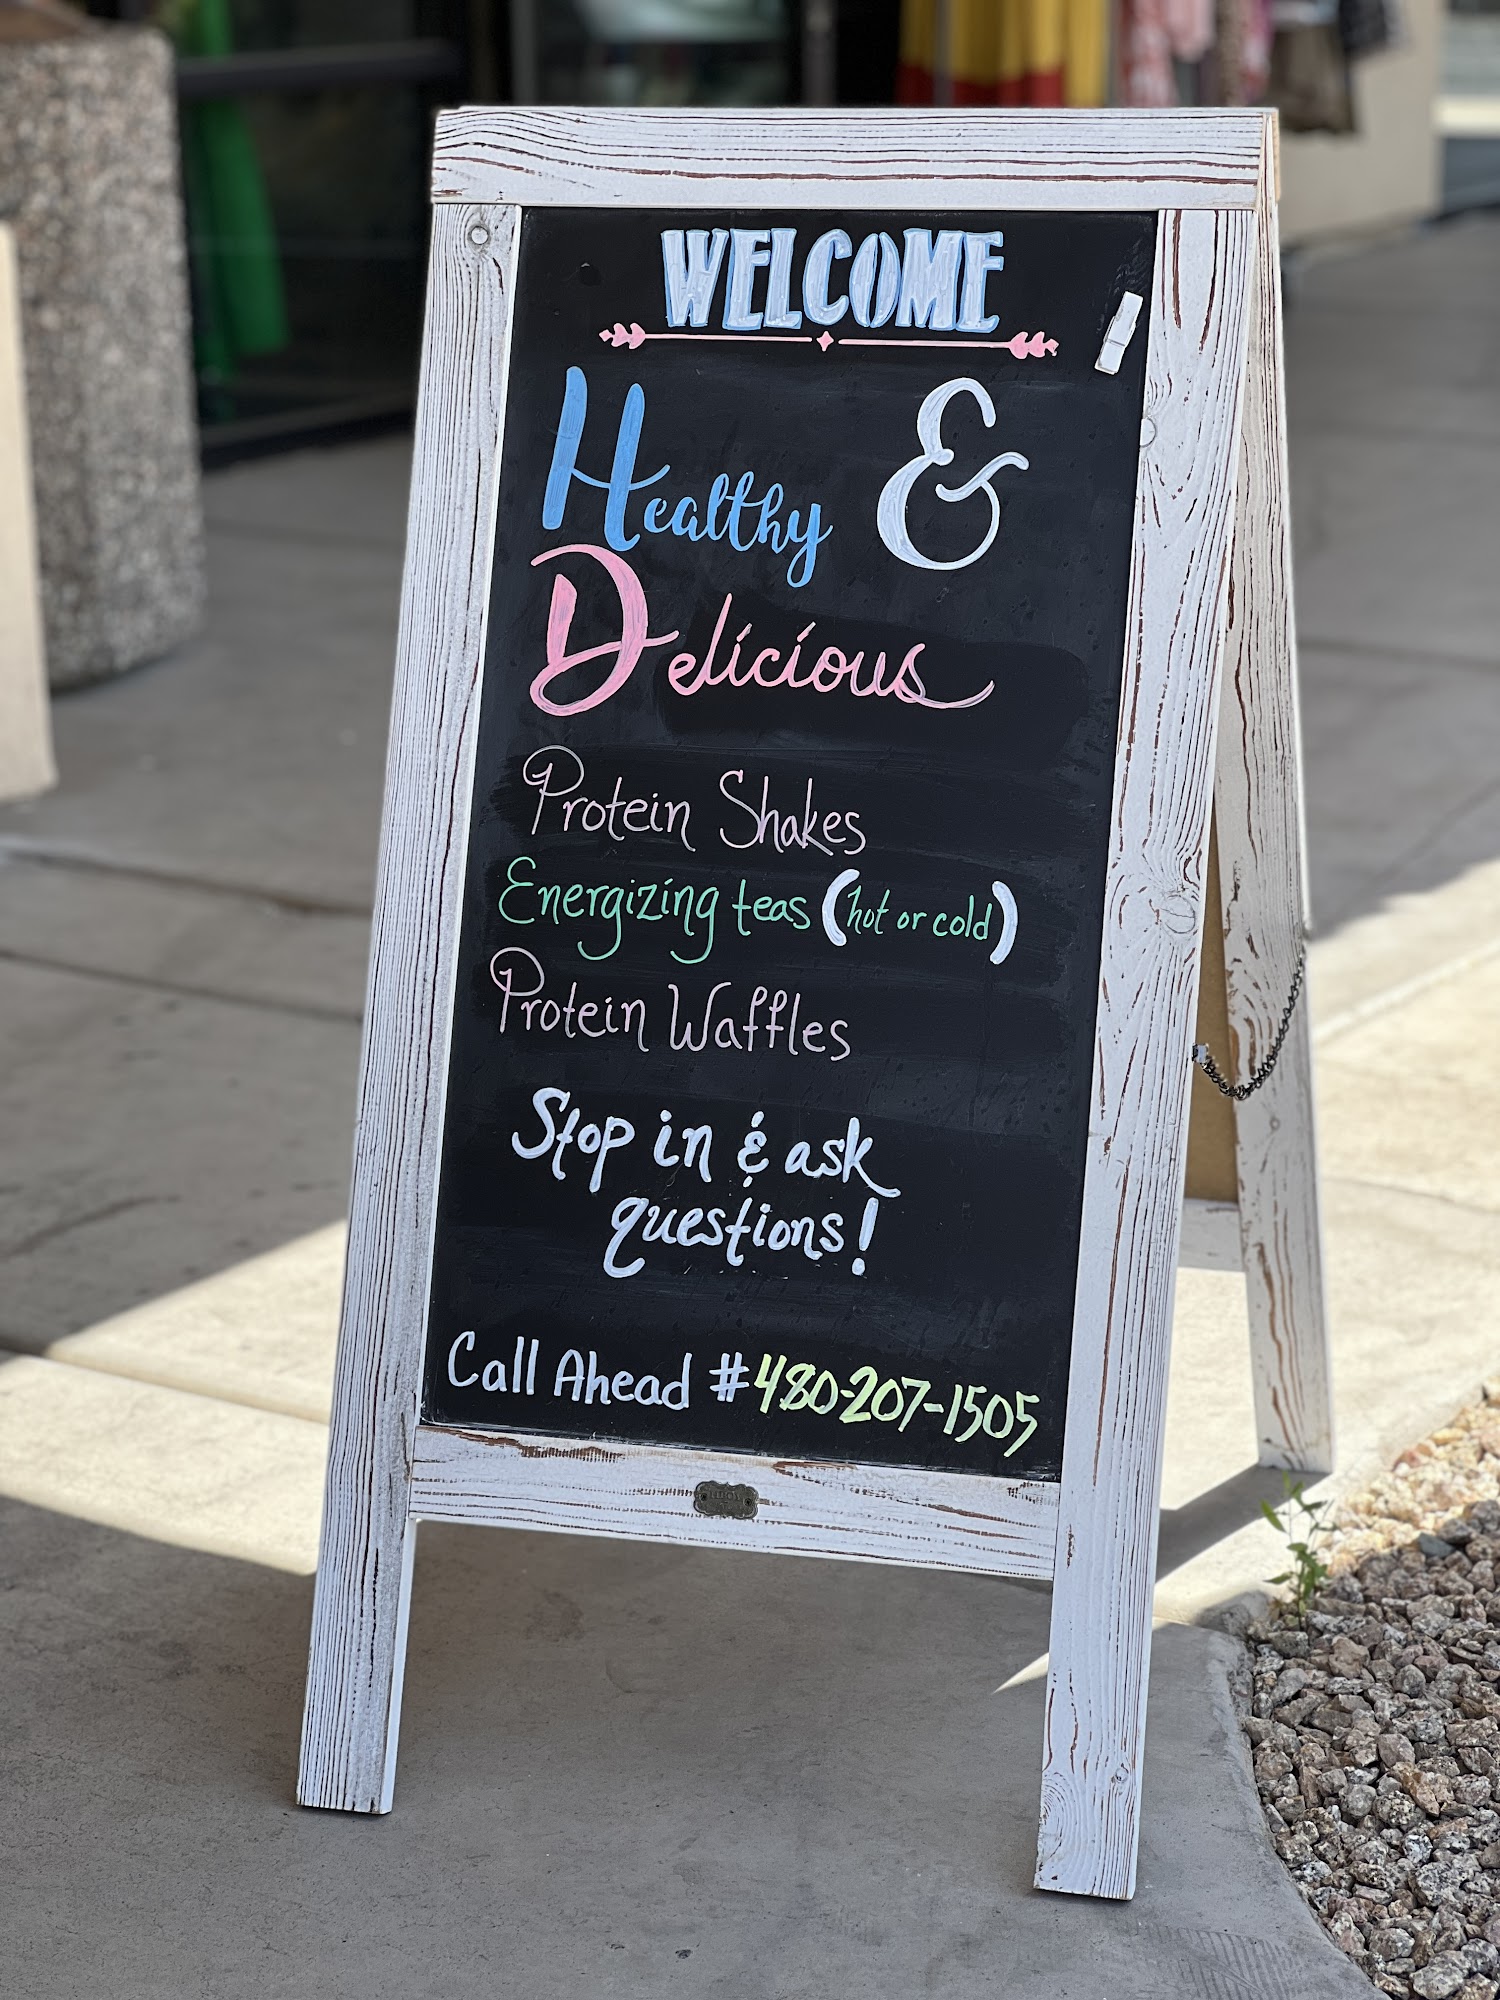 WELCOME
Healthy &
Delicious
Protein Shakes
Energizing teas (hot or cold)
Protein Waffles
Stop in & ask
questions!
Call Ahead #480-207-1505